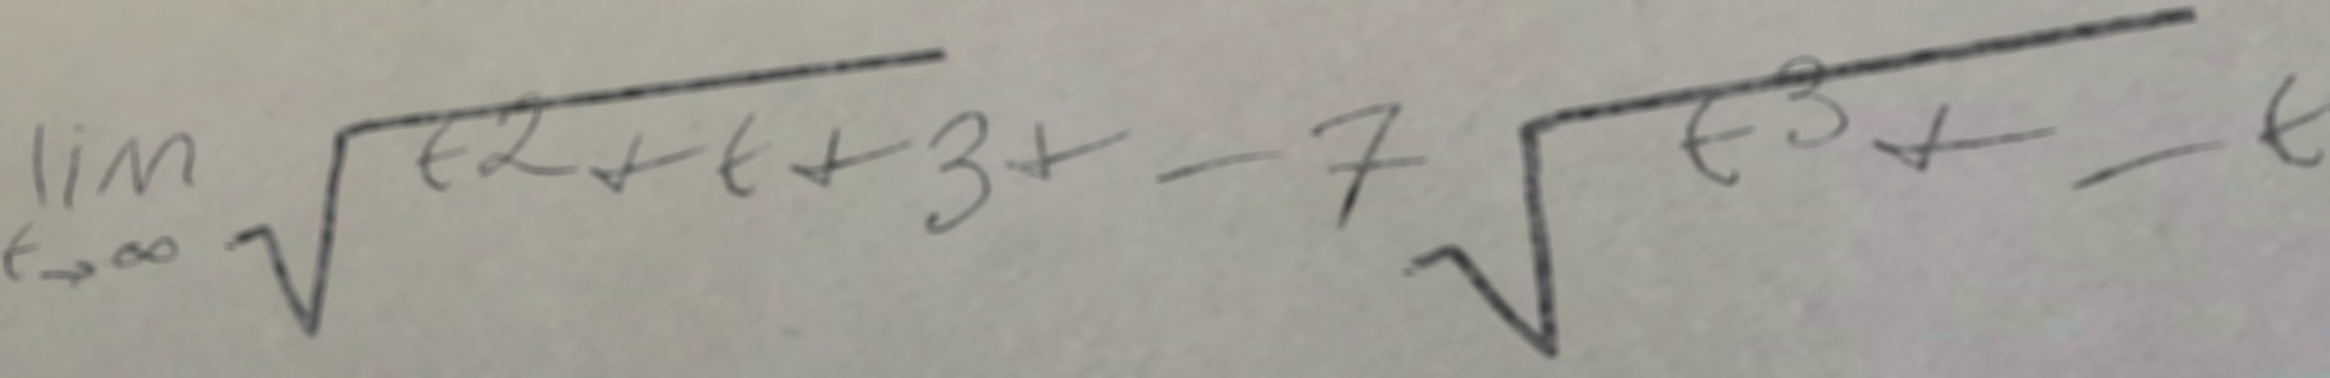 lim t→∞ √(t² + t + 3 + - 7 √(t³ + - t